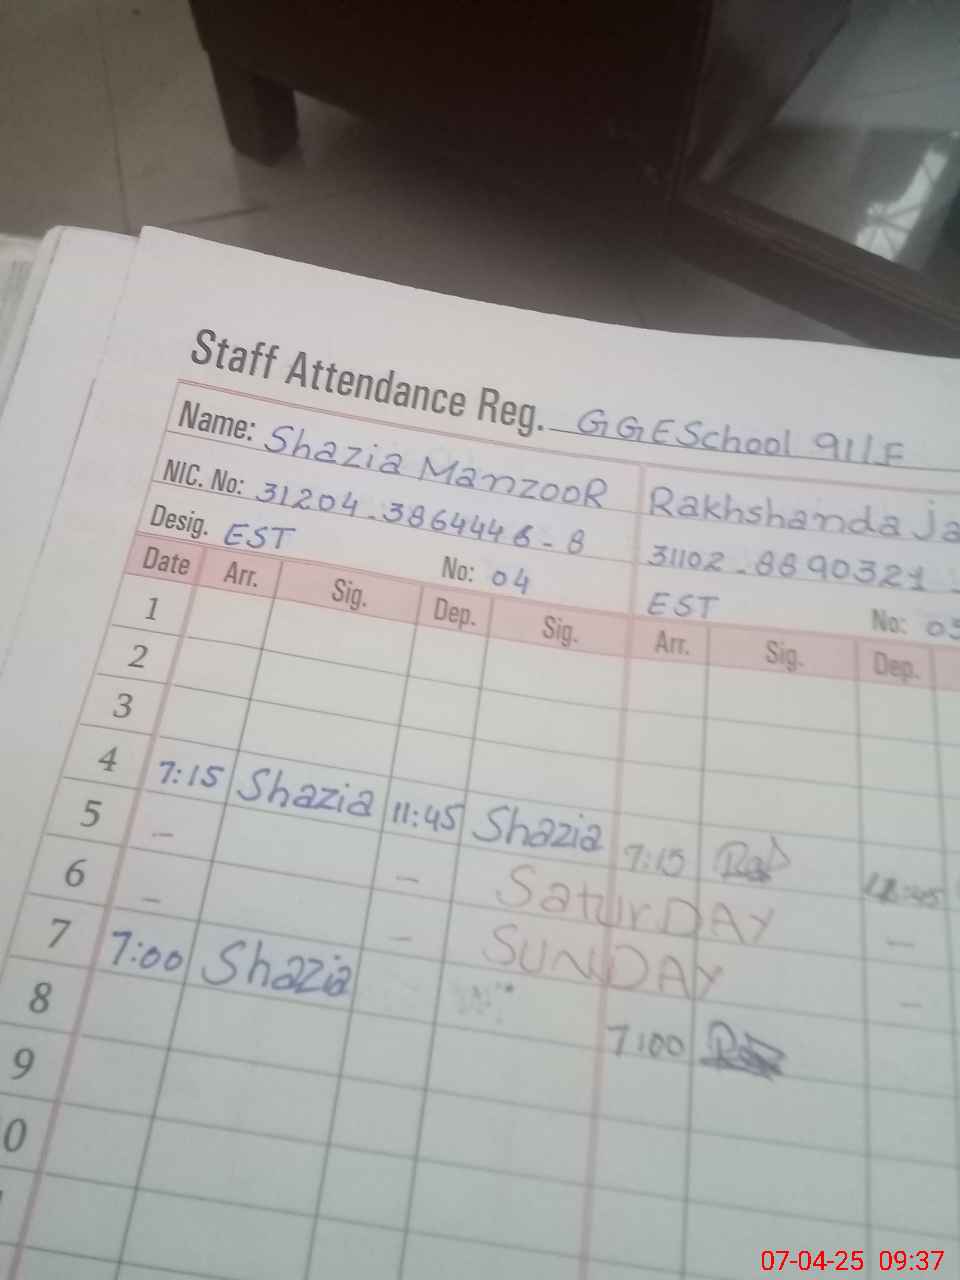 Staff Attendance Reg. GGESchool 911F
Name: Shazia ManzooR Rakhshanda Ja
NIC. No: 31204-3864446-8 31102-8890321-
Desig. EST No: 04 EST No: 05
Date Arr. Sig. Dep. Sig. Arr. Sig. Dep.
1
2
3
4 7:15 Shazia 11:45 Shazia 7:15
5 - - SaturDAY -
6 - - SUNDAY -
7 7:00 Shazia 7:00
8
9
0
07-04-25 09:37